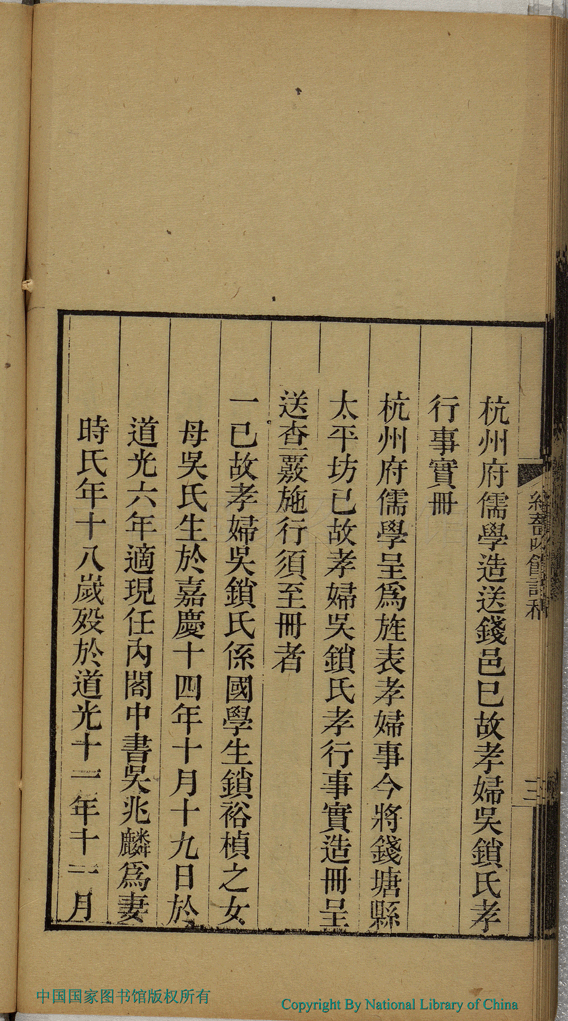 杭州府儒學造送錢邑已故孝婦吳鎖氏孝
行事實冊
杭州府儒學呈為旌表孝婦事今將錢塘縣
太平坊已故孝婦吳鎖氏孝行事實造冊呈
送查覈施行須至冊者
一已故孝婦吳鎖氏係國學生鎖裕楨之女
母吳氏生於嘉慶十四年十月十九日於
道光六年適現任內閣中書吳兆麟為妻
時氏年十八歲歿於道光十二年十一月
館詩稿
三
中国国家图书馆版权所有
Copyright By National Library of China